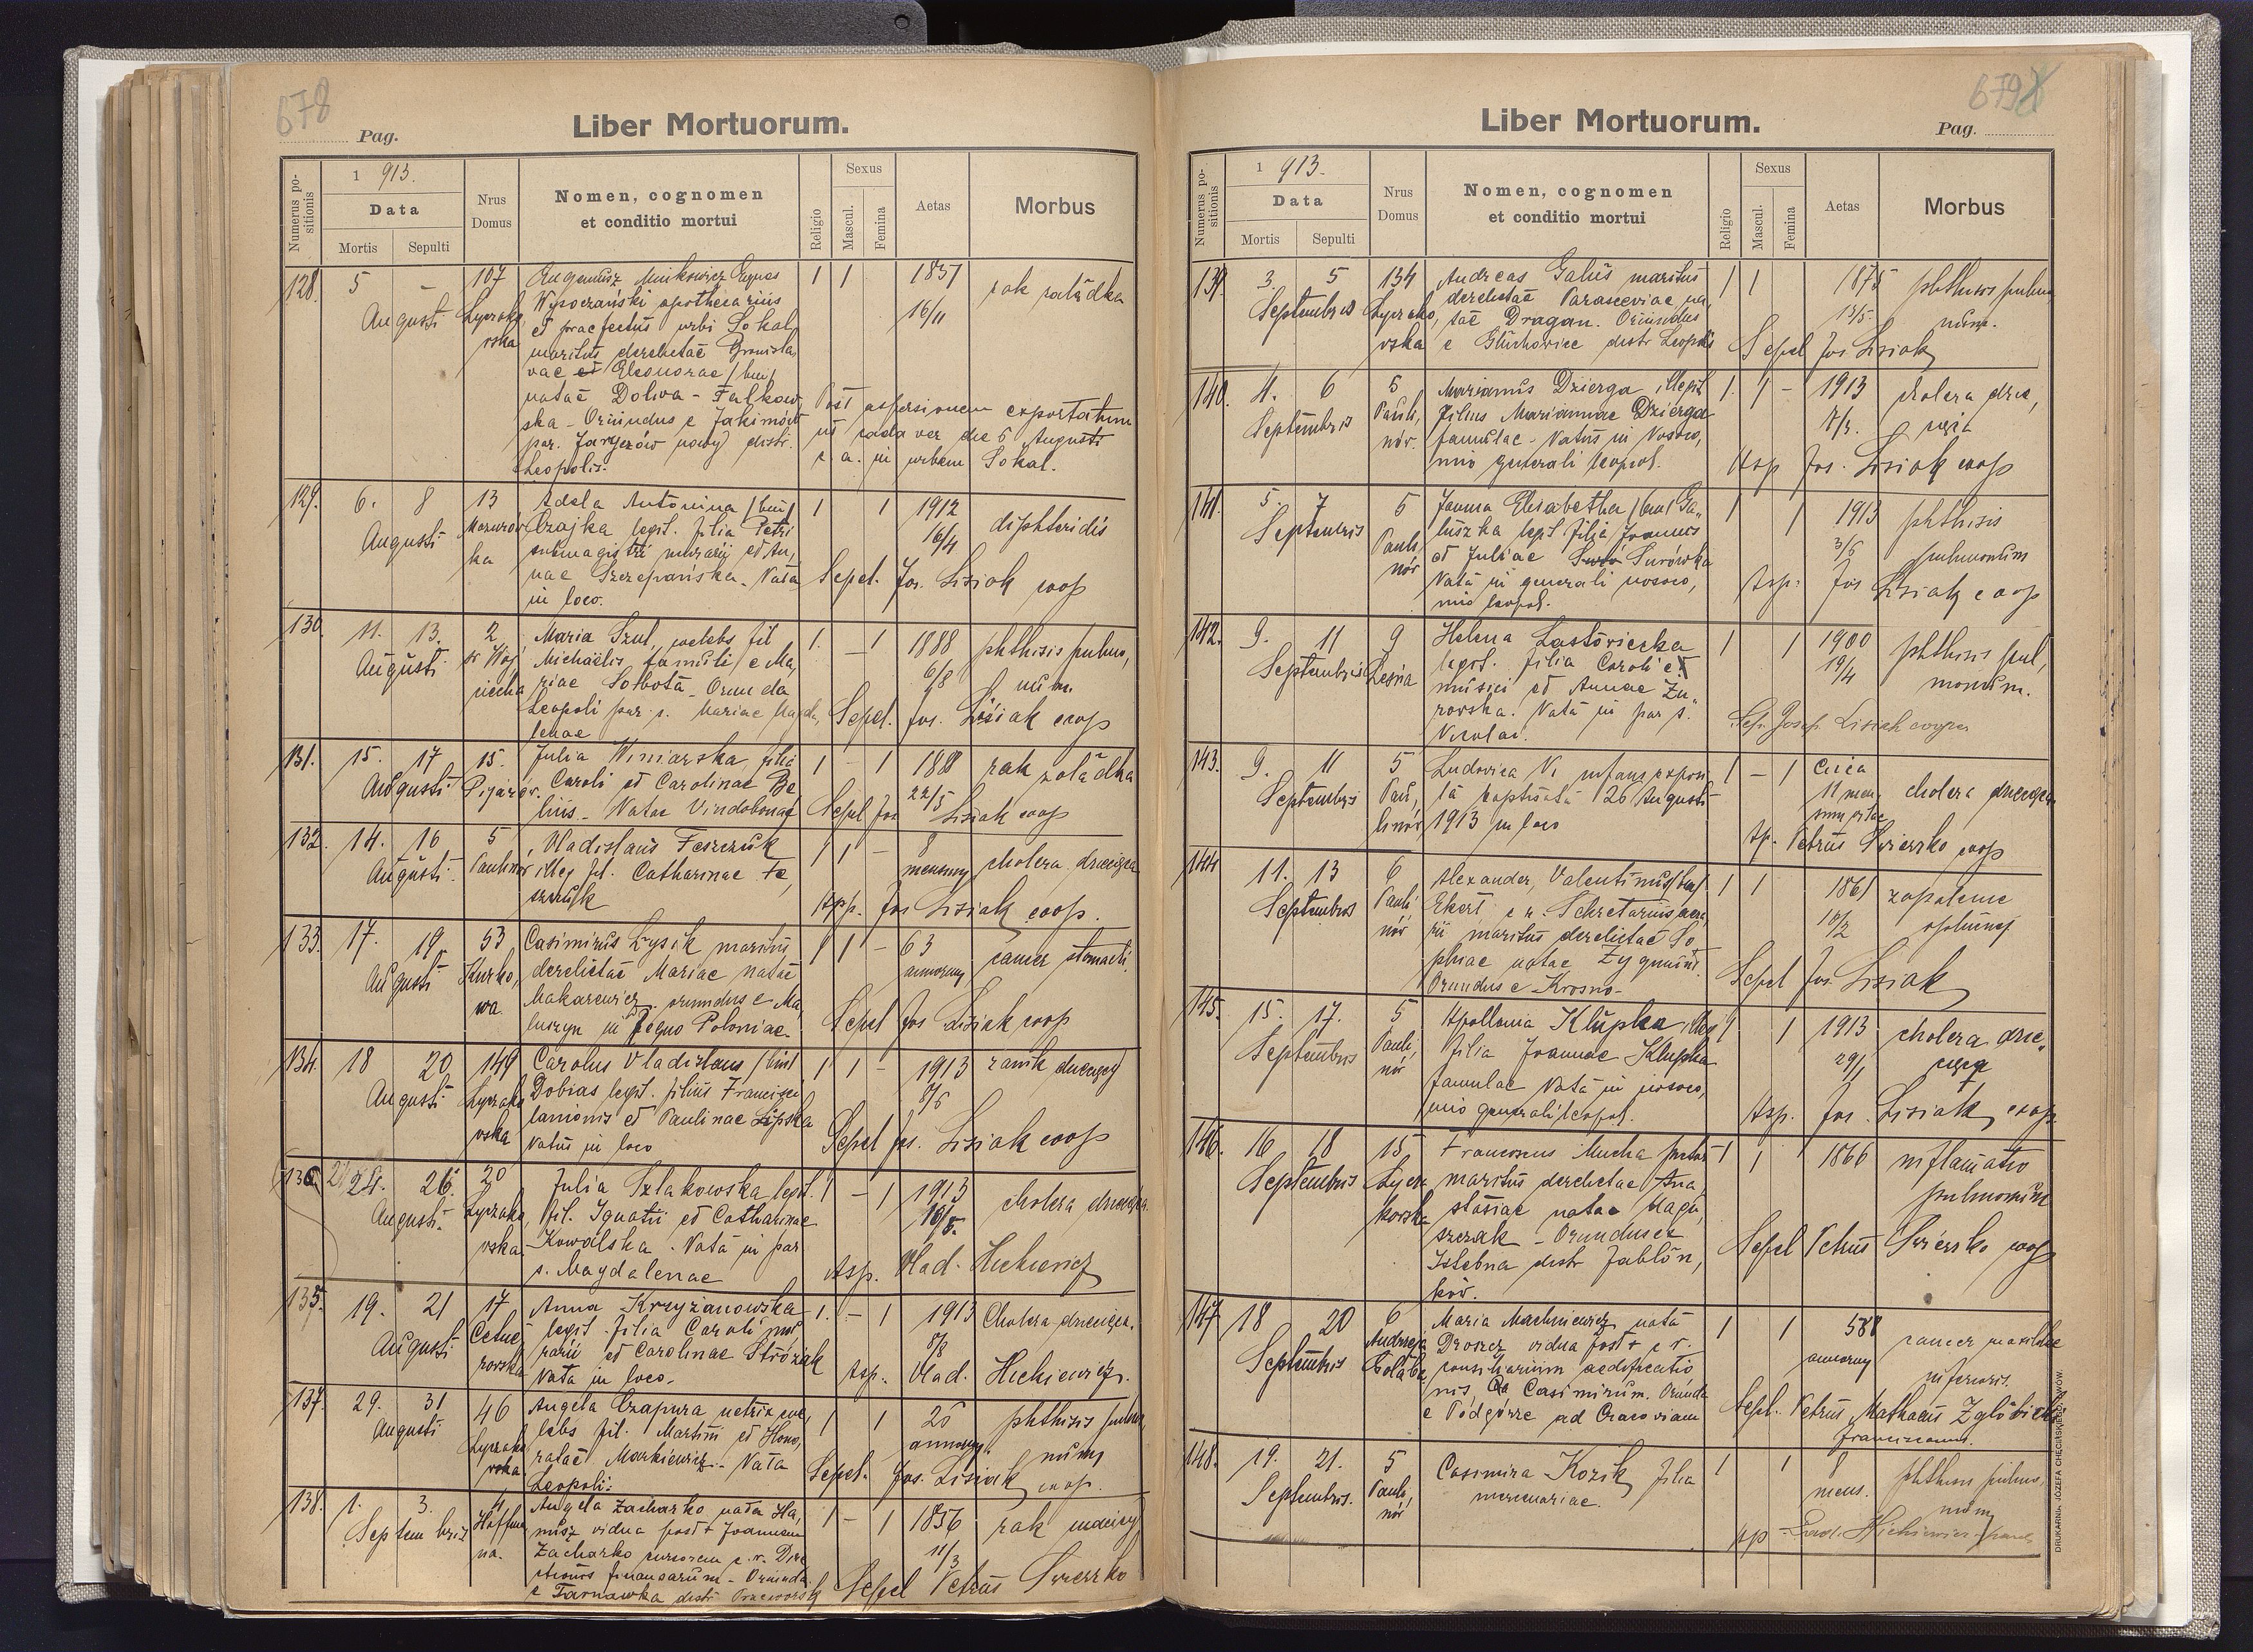 678
Pag.
Liber Mortuorum.
Numerus positionis
1 913.
Data
Mortis
Sepulti
Nrus Domus
Nomen, cognomen
et conditio mortui
Religio
Sexus
Mascul.
Femina
Aetas
Morbus
128. 5 - Augusti
107 Łyczakowska
Wysoczański apothecarius
et praefectus urbi Sokal,
maritus derelictae Bronisla,
vae et Eleonorae /bin/
natae Doliva - Falkow
ska - Oriundus e
par. Jaryczów nowy distr.
Leopolis.
1 1
1851
16/11
rak żołądka
Post aspersionem exportatum
cadaver die 6 Augusti
c. a. in urbem Sokal.
129. 6. 8 Augusti
13
Adela Antonina /bin/
Czajka legit. filia Petri
submagistri murarii et An,
nae Szczepańska. Nata
in loco.
1 1
1912
16/4
diphteridis
Sepel. Jos. Lisiak coop
130. 11. 13. Augusti
2
Maria Szul, coelebs fil
Michaëlis famuli e Ma,
riae Sobota - Oriunda
Leopoli par. s. Mariae Magda,
lenae
1. - 1
1888
6/8
phthisis pulmo,
num
Sepel. Jos. Lisiak coop
131. 15. 17 Augusti
15.
Julia Winiarska, filia
Caroli et Carolinae Be
lius - Natae Vindobonae
1 - 1
1888
22/5
rak żołądka
Sepel Jos Lisiak coop
132. 14. 16 Augusti.
5 Paulinów
Vladislaus Feszczuk
illeg fil. Catharinae Fe,
szczuk
1 1 -
8
mensium
cholera dziecięca
Asp. Jos Lisiak coop.
133. 17. 19. Augusti
53 Kurko,
wa
Casimirus Łysik maritus
derelictae Mariae natae
Makarewicz. oriundus e Ma,
in Regno Poloniae.
1 1 -
63
annorum
cancer stomachi.
Sepel Jos Lisiak coop
134. 18 20 Augusti
149 Łyczako
wska
Carolus Vladislaus /bin/
Dobias legit. filius Francisci
lanionis et Paulinae Lipska
natus in loco
1 1 -
1913
8/6
zanik dziecięcy
Sepel Jos. Lisiak coop
136. 24. 26. Augusti.
20
Łyczako,
wska.
Julia Szlakowska legit.
fil. Ignatii et Catharinae
Kowalska. Nata in par
s. Magdalenae
1 - 1
1913
18/5.
cholera dziecięca.
Asp. Vlad. Hickiewicz
135. 19. 21 Augusti
17
Cetne
rowska
Anna Krzyżanowska
legit. filia Caroli mu
rarii et Carolinae Stróżak
Nata in loco.
1. - 1
1913
8/8
Cholera dziecięca.
Asp. Vlad. Hickiewicz.
137. 29. 31 Augusti
46
Łyczako
wska
Angela Czapura netrix coe,
lebs fil. Martini et Hono,
ratae Markiewicz - Nata
Leopoli:
1 1
26
annorum.
phthisis pulmo,
num
Sepel. Jos. Lisiak coop.
138. 1. 3. Septembris
4 Hoffma
na.
Angela Zacharko nata Ha,
nusz vidua post + Joannem
Zacharko cursorem c. r. Dire
ctionis finansarum - Oriunda
e Tarnawka distr Przeworsk
1 - 1
1856
11/3
rak macicy
Sepel Petrus Swierzko
679
Liber Mortuorum.
Pag.
Numerus positionis
1 913.
Data
Mortis
Sepulti
Nrus
Domus
Nomen, cognomen
et conditio mortui
Religio
Sexus
Mascul.
Femina
Aetas
Morbus
139. 3. 5 Septembris
134
Łyczako,
wska
Andreas Galus maritus
derelictae Parasceviae na,
tae Dragan. Oriundus
e Głuchowice distr Leopolis
1 1
1875
13/5
phthisis pulmo
num.
Sepel Jos. Lisiak
140. 4. 6 Septembris
5
Pauli,
nów.
Marianus Dzierga illegit
filius Mariannae Dzierga
famulae - Natus in Nosoco,
mio generali leopol.
1. 1 -
1913
8/3.
cholera dzie,
cięca
Asp Jos. Lisiak coop
141. 5. 7 Septembris
5
Pauli,
nów
Joanna Elisabetha /bin/ Ga,
łuszka legit filia Joannis
et Juliae Surówka
Nata in generali nosoco,
mio leopol.
1 1
1913
3/6
phthisis
pulmonum
Asp: Jos Lisiak coop
142. 9. 11 Septembris
9
Leśna
Helena Lastowiecka
legit. filia Caroli
musici et Annae Żu,
rowska. Nata in par s.
Nicolai.
1 1
1900
19/4
phthisis pul,
monum.
Sep. Josef Lisiak cooper
143. 9. 11 Septembris
5
Pau,
linów
Ludovica N. infans exposi
ta baptisata 26 Augusti
1913 in loco
1 - 1
Circa
11 men
sium vitae
cholera dziecięca
Asp. Petrus Swierzko coop
144 11. 13 Septembris
6
Pauli
nów
Alexander, Valentinus /bin/
Ekert c. r. Secretarius
maritus derelictae So
phiae natae Zygmunt.
Oriundus e Krosno.
1 1
1861
18/2
zapalenie
opłucnej
Sepel Jos. Lisiak
145. 15. 17. Septembris
5
Pauli,
nów
Apollonia Klupka illeg
filia Joannae Klupka
famulae Nata in nosoco,
mio generali leopol.
1 1
1913
29/1
cholera dzie,
cięca
Asp. Jos. Lisiak, coop.
146. 16 18 Septembris
15
Łycza
kowska
Franciscus Mucha
maritus derelictae Ana
stasiae natae Magu,
szczak - Oriundus e
Istebna distr Jabłon,
ków.
1 1
1866
inflamatio
pulmonum
Sepel Petrus Swierzko coop
147 18 20 Septembris
6
Andrzeja
Gołąba
Maria Machniewicz nata
Droszcz vidua post + c. r.
consiliarium aedificatio
nis, Casimirum. Oriunda
e Podgórze ad Cracoviam
1 1
58
annorum
cancer maxillae
inferioris.
Sepel. Petrus Mathaeus Zgłobicki
franciscanus.
148. 19. 21. Septembris.
5
Pauli,
nów
Casimira Kozik filia
mercenariae.
1 1
8
mens.
phthisis pulmo,
num
Asp - Hickiewicz
DRUKARNIA JÓZEFA CHĘCIŃSKIEGO LWÓW.